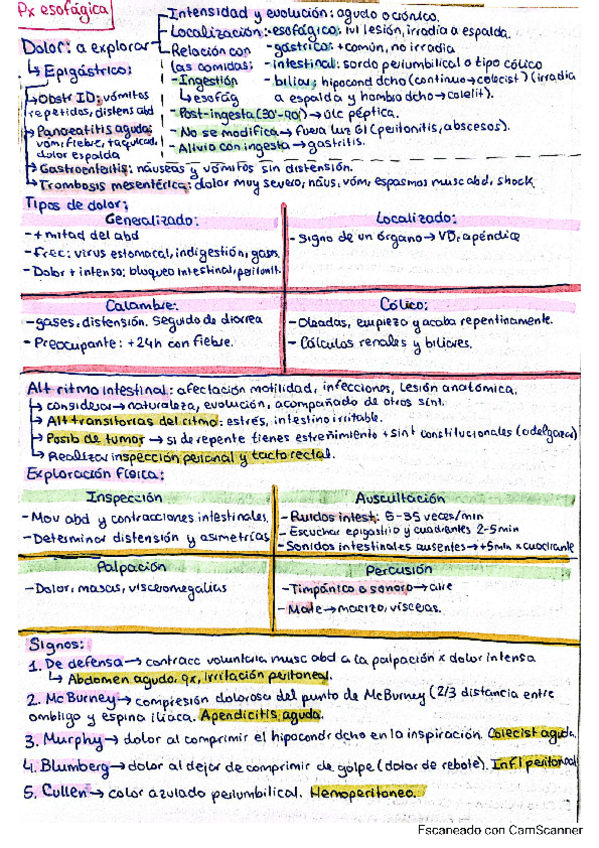 Px esofágica
Dolor: a explorar
- Intensidad y evolución: agudo o crónico.
- Localización: - esofágico: niv lesión, irradia a espalda.
- gástrico: + común, no irradia
- intestinal: sordo periumbilical o tipo cólico
- biliar: hipocond dcho (continuo→colecist) (irradia
a espalda y hombro dcho→colelit).
- Relación con
las comidas:
- Ingestión
↳ esofág
- Post-ingesta (30'-90') → úlc péptica.
- No se modifica → fuera luz GI (peritonitis, abscesos).
- Alivia con ingesta → gastritis.
↳ Epigástrico:
↳ Obstr ID: vómitos
repetidos, distens abd
↳ Pancreatitis aguda:
vóm, fiebre, taquicard,
dolor espalda
↳ Gastroenteritis: náuseas y vómitos sin distensión.
↳ Trombosis mesentérica: dolor muy severo, náus, vóm, espasmos musc abd, shock
Tipos de dolor:
Generalizado:
- + mitad del abd
- Frec: virus estomacal, indigestión, gases.
- Dolor + intenso: bloqueo intestinal, peritonit.
Localizado:
- Signo de un órgano → VB, apéndice
Calambre:
- gases, distensión. Seguido de diarrea
- Preocupante: +24h con fiebre.
Cólico:
- Oleadas, empieza y acaba repentinamente.
- Cálculos renales y biliares.
Alt ritmo intestinal: afectación motilidad, infecciones, lesión anatómica.
↳ considerar → naturaleza, evolución, acompañado de otros sínt.
↳ Alt transitorias del ritmo: estrés, intestino irritable.
↳ Posib de tumor → si de repente tienes estreñimiento + sínt constitucionales (adelgazar)
↳ Realizar inspección perianal y tacto rectal.
Exploración física:
Inspección
- Mov abd y contracciones intestinales.
- Determinar distensión y asimetrías
Auscultación
- Ruidos intest: 5-35 veces/min
- Escuchar epigastrio y cuadrantes 2-5 min
- Sonidos intestinales ausentes → +5min x cuadrante
Palpación
- Dolor, masas, visceromegalias
Percusión
- Timpánico o sonoro → aire
- Mate → macizo, vísceras.
Signos:
1. De defensa → contracc voluntaria musc abd a la palpación x dolor intenso
↳ Abdomen agudo qx, irritación peritoneal.
2. Mc Burney → compresión dolorosa del punto de McBurney (2/3 distancia entre
ombligo y espina ilíaca. Apendicitis aguda.
3. Murphy → dolor al comprimir el hipocondr dcho en la inspiración. Colecist aguda.
4. Blumberg → dolor al dejar de comprimir de golpe (dolor de rebote). Infl peritoneal
5. Cullen → color azulado periumbilical. Hemoperitoneo.
Escaneado con CamScanner